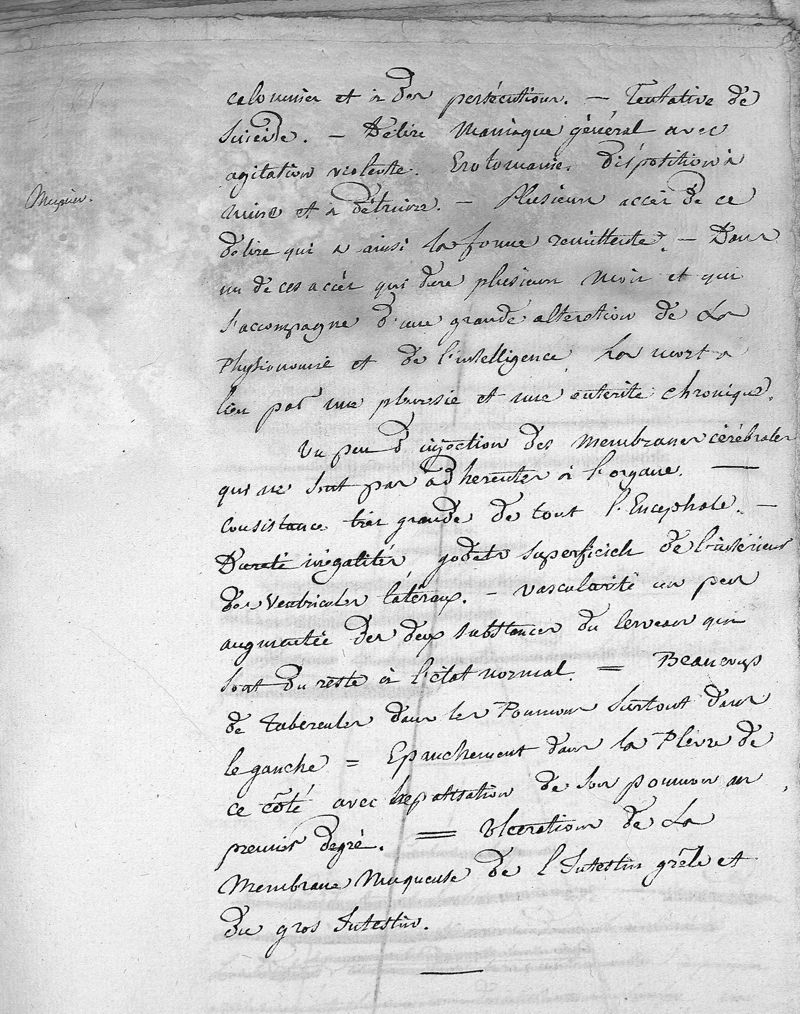 calomnier et à des persécutions. — Tentative de
Suicide. — Délire Maniaque général avec
agitation violente. Erotomanie. disposition à
Meunier.
nuire et à détruire. — Plusieurs accès de ce
délire qui a ainsi la forme remittente. — Dans
un de ces accès qui dure plusieurs mois et qui
s'accompagne d'une grande altération de La
Physionomie et de l'intelligence, La mort a
lieu par une pleurésie et une entérite chronique.
Un peu d'injection des membranes cérébrales
qui ne sont pas adherentes à l'organe. —
Consistance très grande de tout l'Encephale. —
Dureté inégalités, godets superficiels de l'intérieur
des Ventricules latéraux. — Vascularité un peu
augmentée des deux substances du Cerveau qui
sont du reste à l'état normal. = Beaucoup
de Tubercules dans les Poumons surtout dans
le gauche = Epanchement dans la Plèvre de
ce côté avec hepatisation de son poumon au
premier degré. = Ulcerations de La
Membrane Muqueuse de l'Intestin grêle et
du gros Intestin.